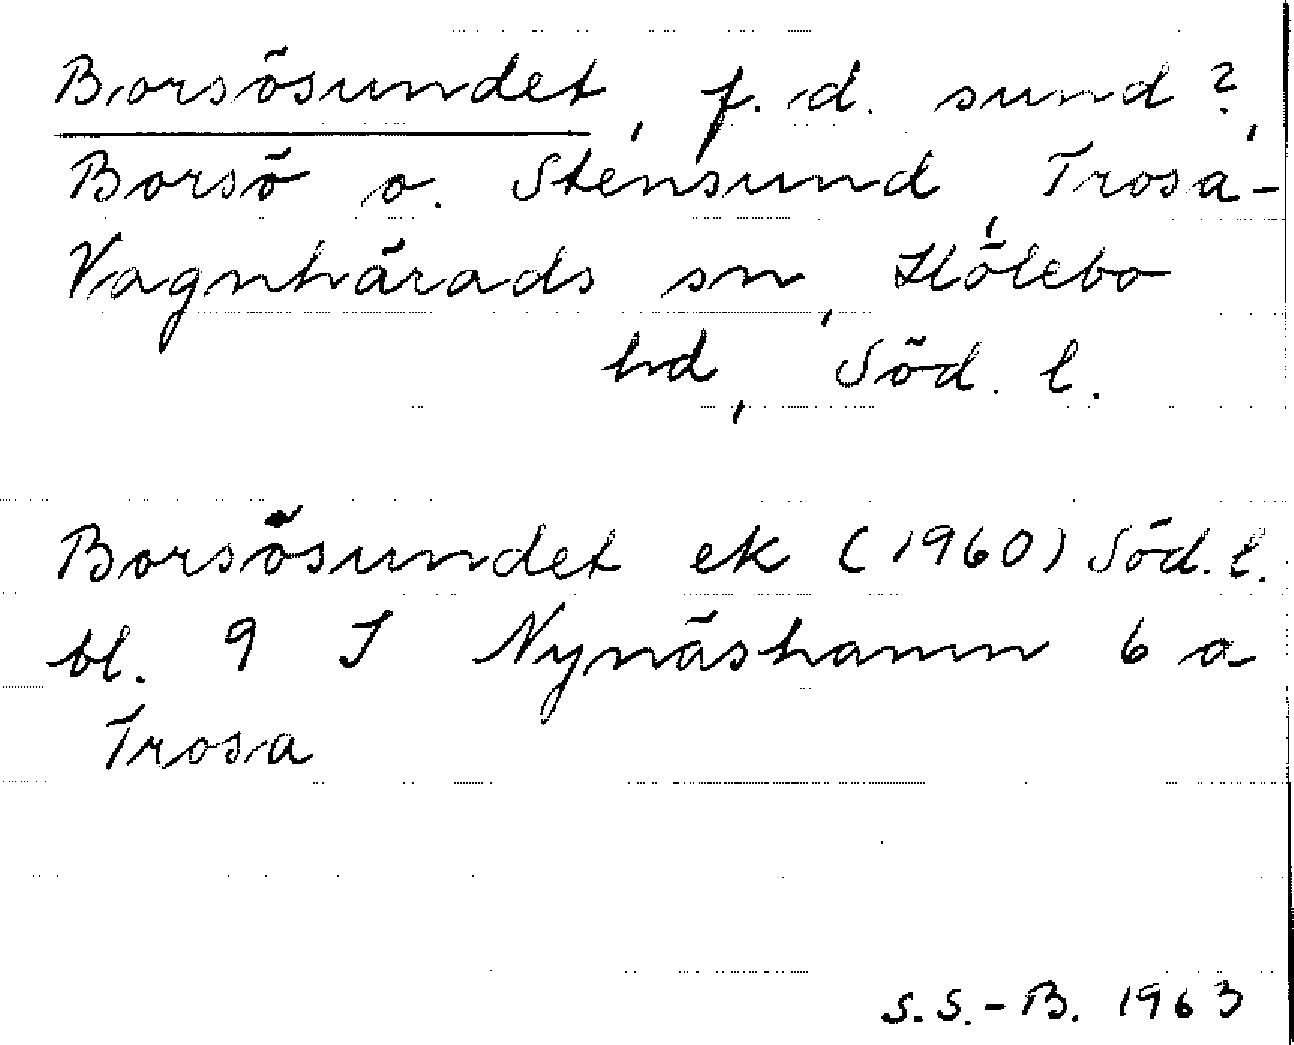 Borsösundet, f.d. sund?,
Borsö o. Stensund, Trosa-
Vagnhärads sn, Hölebo
hd, Söd. l.
Borsösundet ek (1960) Söd. l.
bl. 9 I Nynäshamn 6 a
Trosa
S.S.-B. 1963